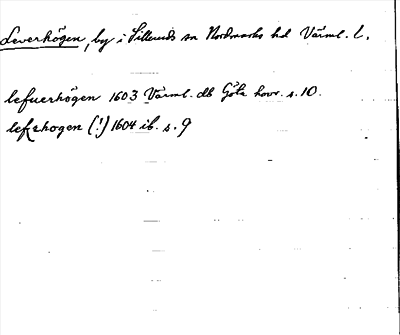 Leverhögen, by i Silleruds sn Nordmarks hd Värml. l.
lefuerhögen 1603 Värml. db Göta hovr. s. 10.
lefrhogen (!) 1604 ib. s. 9